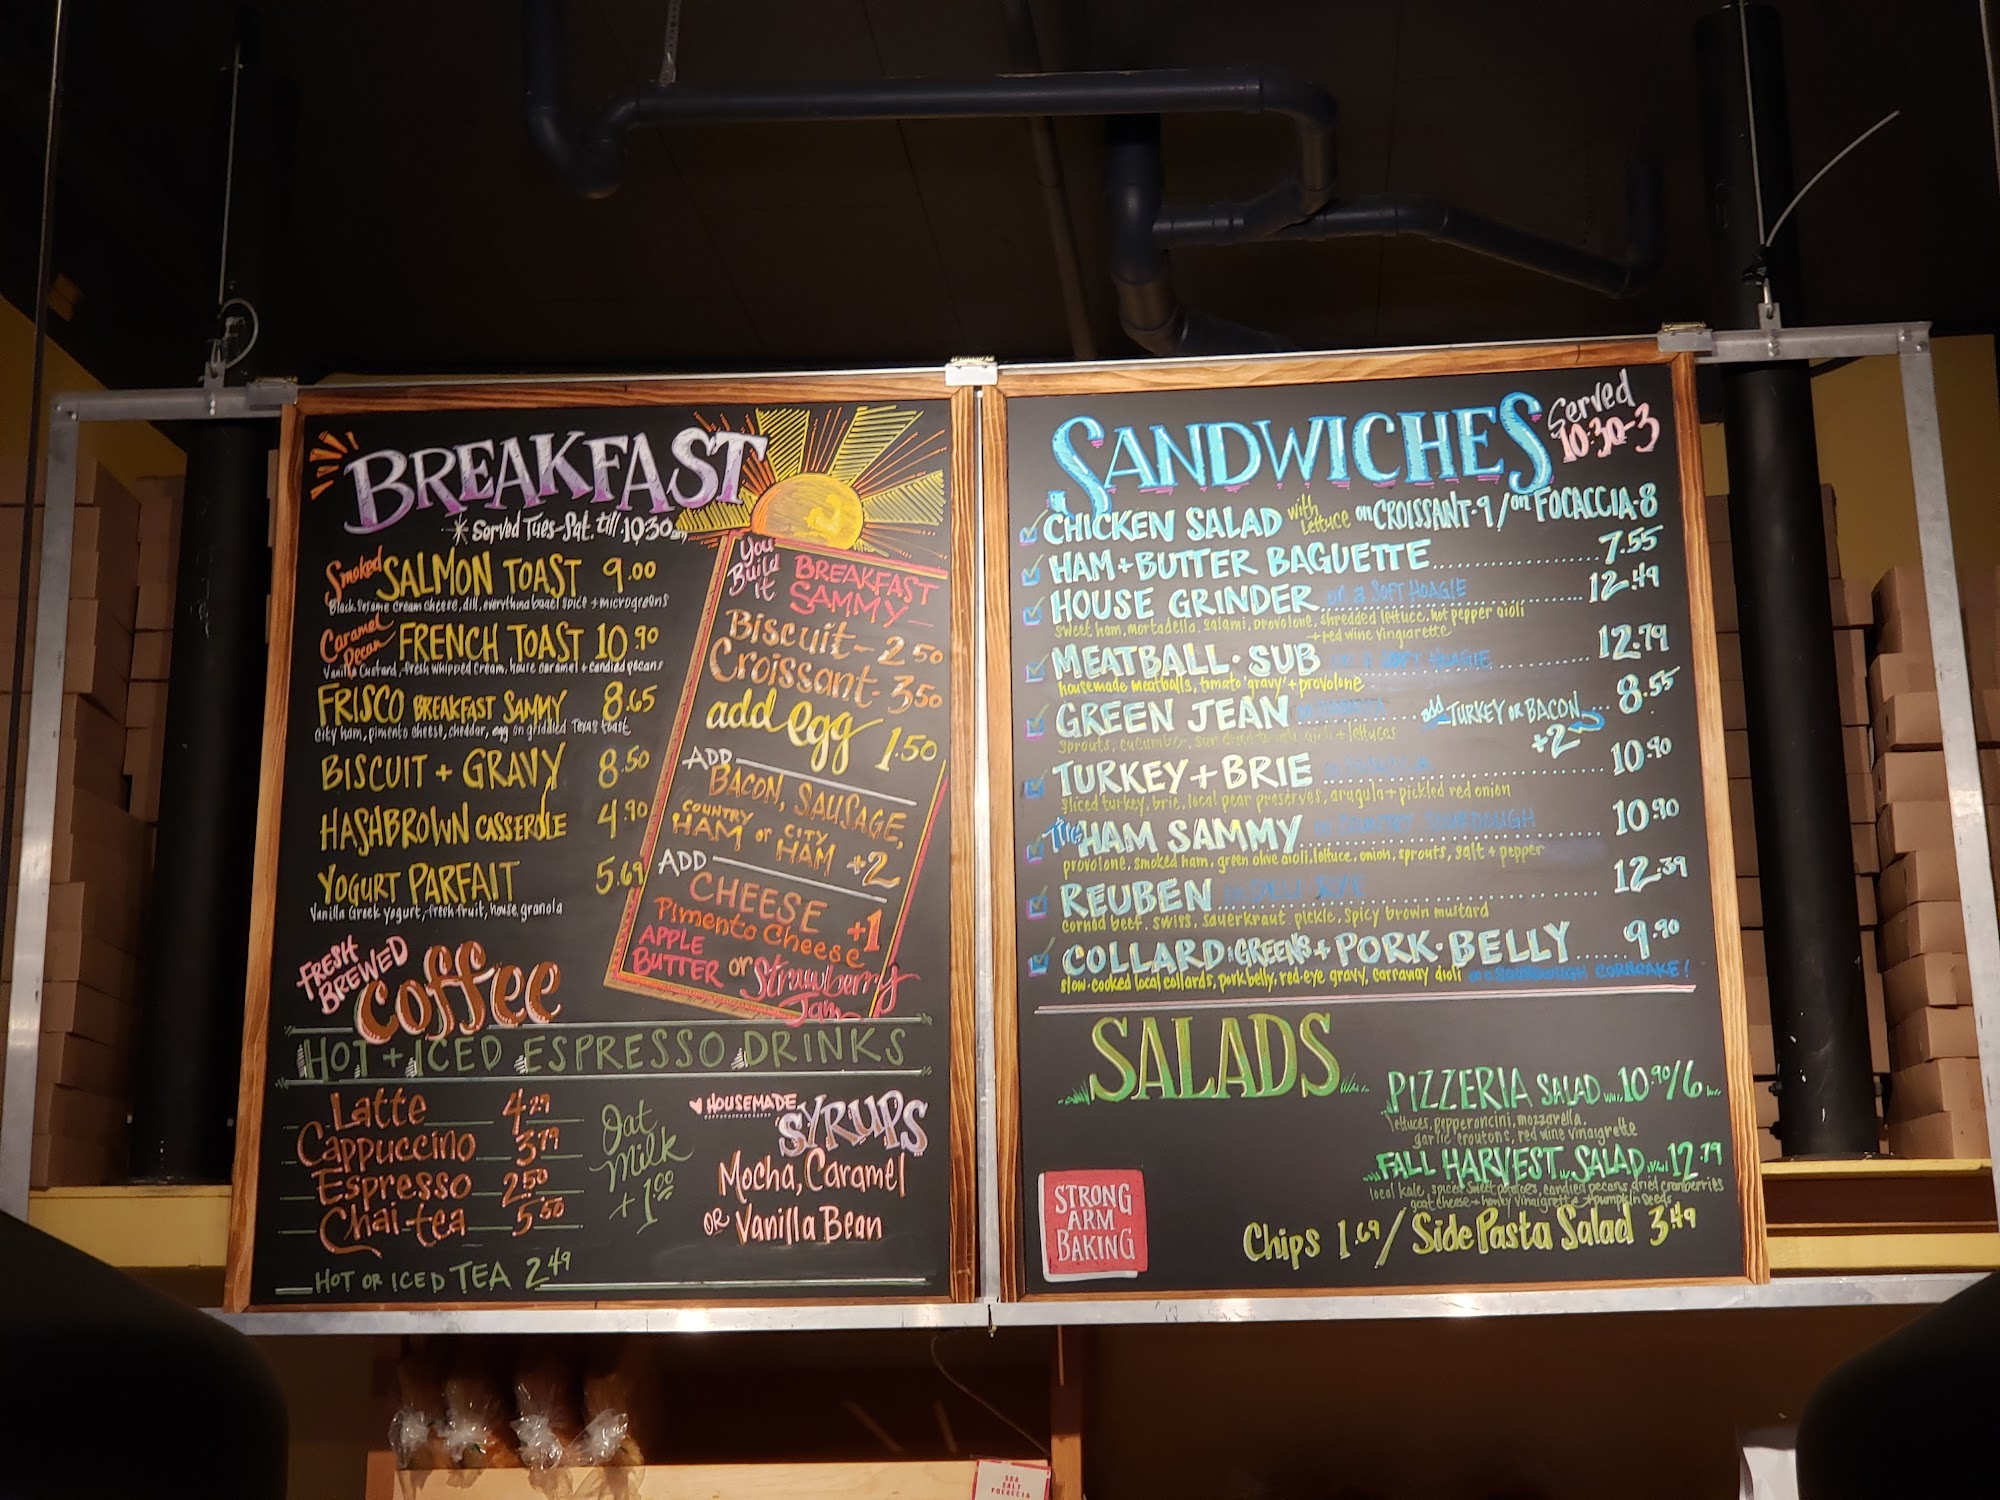 BREAKFAST
*Served Tues-Sat. till 10:30am
Smoked SALMON TOAST 9.00
Black Sesame cream cheese, dill, everything bagel spice + microgreens
Caramel Pecan FRENCH TOAST 10.90
Vanilla Custard, fresh whipped cream, house caramel + candied pecans
FRISCO BREAKFAST SAMMY 8.65
City ham, pimento cheese, cheddar, egg on griddled Texas toast
BISCUIT + GRAVY 8.50
HASHBROWN CASSEROLE 4.90
YOGURT PARFAIT 5.69
Vanilla Greek yogurt, fresh fruit, house granola
You Build It BREAKFAST SAMMY
Biscuit- 2.50
Croissant- 3.50
add egg 1.50
ADD
BACON, SAUSAGE,
COUNTRY HAM or CITY HAM +2
ADD
CHEESE +1
Pimento Cheese
APPLE BUTTER or Strawberry Jam
FRESH BREWED coffee
HOT + ICED ESPRESSO DRINKS
Latte 4.29
Cappuccino 3.79
Espresso 2.50
Chai tea 5.50
Oat Milk +1.00
HOUSEMADE SYRUPS
Mocha, Caramel
OR Vanilla Bean
HOT OR ICED TEA 2.49
SANDWICHES
Served 10:30-3
CHICKEN SALAD with Lettuce on CROISSANT-9/on FOCACCIA-8
HAM+BUTTER BAGUETTE 7.55
HOUSE GRINDER on a SOFT HOAGIE 12.49
sweet ham, mortadella, salami, provolone, shredded lettuce, hot pepper aioli
+ red wine vingiarette
MEATBALL·SUB on a SOFT HOAGIE 12.79
housemade meatballs, tomato 'gravy' + provolone
GREEN JEAN add TURKEY or BACON +2 8.55
sprouts, cucumber, aioli + lettuces
TURKEY + BRIE 10.90
sliced turkey, brie, local pear preserves, arugula + pickled red onion
THIS HAM SAMMY on COUNTRY SOURDOUGH 10.90
provolone, smoked ham, green olive aioli, lettuce, onion, sprouts, salt + pepper
REUBEN on DELI RYE 12.39
corned beef, swiss, sauerkraut pickle, spicy brown mustard
COLLARD GREENS + PORK·BELLY 9.90
slow-cooked local collards, pork belly, red-eye gravy, carraway aioli CORNCAKE!
SALADS
PIZZERIA SALAD 10.90/6
lettuces, pepperoncini, mozzarella,
garlic croutons, red wine vinaigrette
FALL HARVEST SALAD 12.79
local kale, spiced sweet potatoes, candied pecans, dried cranberries
goat cheese + honey vinaigrette + pumpkin seeds
Chips 1.69/Side Pasta Salad 3.49
STRONG
ARM
BAKING
SEA
SALT
FOCACCIA